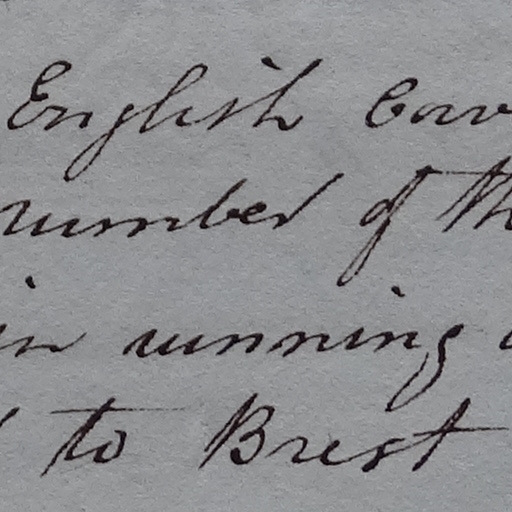 English
number of
in running
to Brest